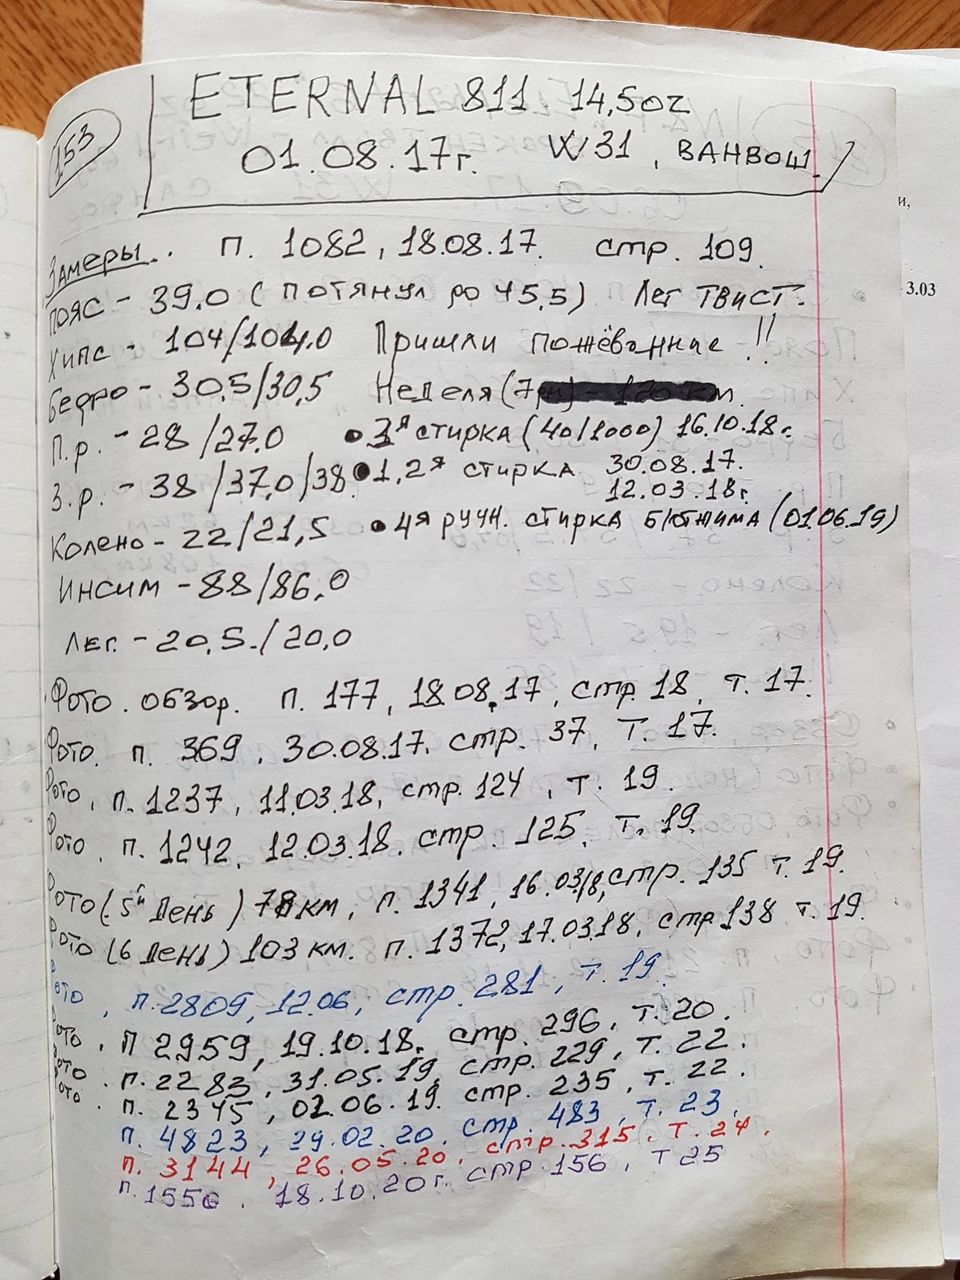 153
ETERNAL 811. 14,5oz
01.08.17г. W31, ВАНВОШ
Замеры.. п. 1082, 18.08.17. стр. 109.
Пояс - 39.0 (потянул до 45,5) Лег твист.
Хипс - 104/104,0 Пришли пожёванные!!
Бедро - 30,5/30,5 Неделя (7
П.р. - 28/27.0 • 3я стирка (40/1000) 16.10.18г.
З.р. - 38/37,0/38. • 1,2я стирка 30.08.17.
12.03.18г.
Колено - 22/21,5 • 4я ручн. стирка б/отжима (01.06.19)
Инсим - 88/86,0
Лег. - 20,5./20,0
Фото. обзор. п. 177, 18.08.17, стр. 18, т. 17.
Фото. п. 369, 30.08.17. стр. 37, т. 17.
Фото, п. 1237, 11.03.18, стр. 124, т. 19.
Фото, п. 1242, 12.03.18. стр. 125, т. 19.
Фото (5й день) 78 км, п. 1341, 16.03.18, стр. 135 т. 19.
Фото (6 день) 103 км. п. 1372, 17.03.18, стр 138 т. 19.
Фото, п. 2809, 12.06, стр. 281, т. 19.
Фото, п 2959, 19.10.18. стр. 296, т. 20.
Фото. п. 2283, 31.05.19, стр. 229, т. 22.
Фото. п. 2345, 02.06.19. стр. 235, т. 22.
п. 4823, 29.02.20. стр. 483, т. 23.
п. 3144, 26.05.20, стр. 315. т. 24.
п. 1556. 18.10.20г. стр. 156, т 25
и,
3.03